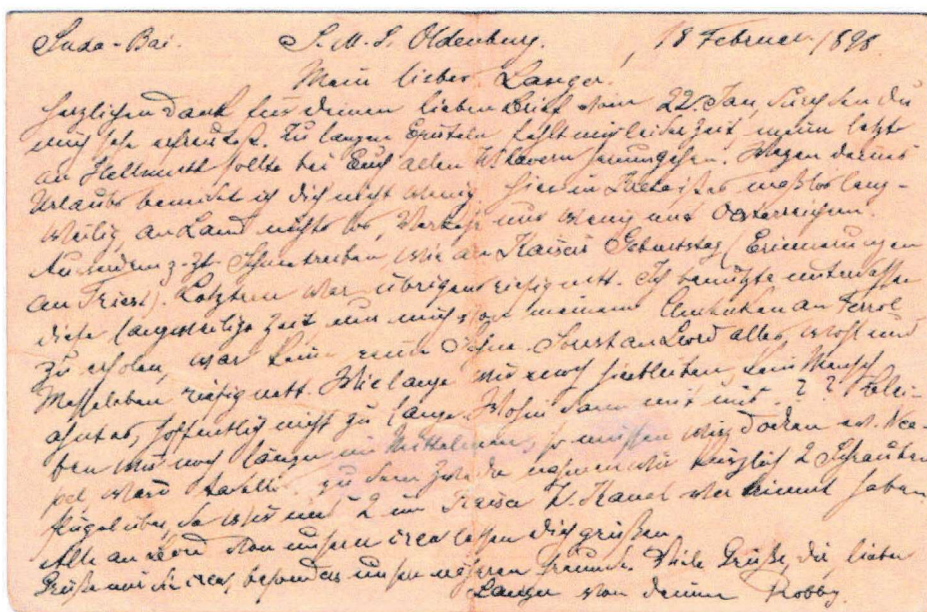 Suda-Bai. S.M.S. Oldenburg. 18 Februar 1898.
Mein lieber Langer!
Herzlichen Dank für deinen lieben Brief vom 22. Jan, durch den du
mich sehr erfreutest. Zu langen Episteln fehlt mir leider Zeit, mein letzter
an Hellmuth sollte bei Euch allen herumgehen. Wegen deines
Urlaubs beneide ich dich nicht wenig. Hier in Kreta ist es maßlos lang-
weilig, an Land nichts los, Verkehr nur wenig mit Österreichern.
Ausserdem z. Zt. Schneetreiben, wie an Kaisers Geburtstag (Erinnerungen
an Triest). Letzterer war übrigens riesig nett. Ich benutzte unterdessen
diese langweilige Zeit um mich von meinem Andenken an Ferrol
zu erholen, war kaum ohne. Sonst an Bord alles wohl und
Messeleben riesig nett. Wie lange wir noch hierbleiben, kein Mensch
ahnt es, hoffentlich nicht zu lange. Wohin dann mit uns ? ? Blei-
ben wir noch länger im Mittelmeer, so müssen wir docken ev. Nea-
pel zu dem Zwecke nahmen wir kürzlich 2 Schrauben
flügel über, da wir uns 2 im Kaiser W. Kanal haben.
Alle an Bord von unserer crew lassen dich grüßen
Grüße mir die crew, besonders unsere näheren Freunde. Viele Grüße, dir, lieber
Langer von deinem Robby.